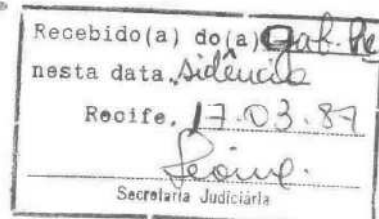 Recebido(a) do(a) Gab. Pre
nesta data. sidência
Recife, 17.03.87
Secretaria Judiciária